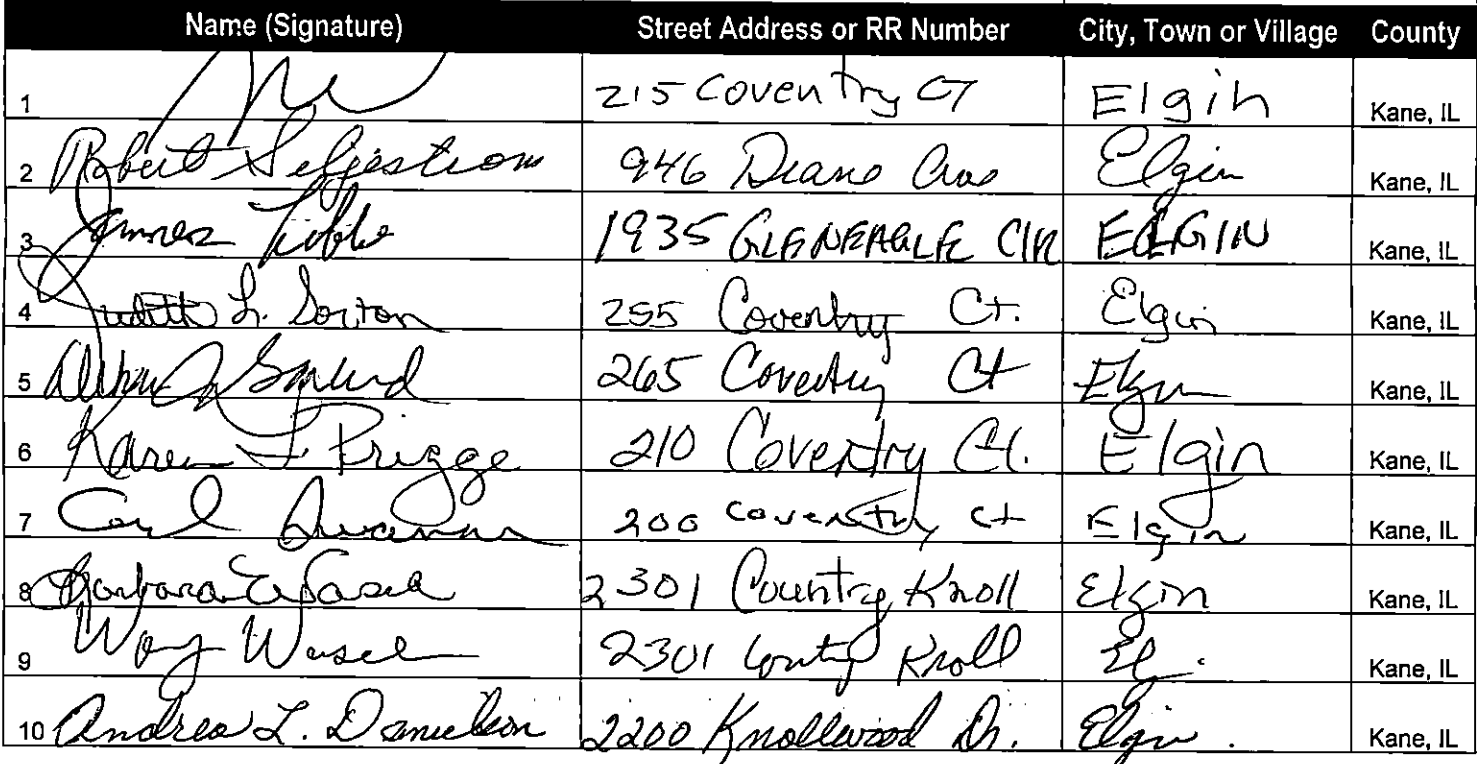 Name (Signature) Street Address or RR Number City, Town or Village County
1 215 Coventry CT Elgin Kane, IL
2 Robert Seljestrom 946 Diane Ave Elgin Kane, IL
3 James 1935 GLENEAGLE CIR ELGIN Kane, IL
4 Judith L. Sorton 255 Coventry Ct. Elgin Kane, IL
5 265 Coventry Ct Elgin Kane, IL
6 Karen F Prigge 210 Coventry Ct. Elgin Kane, IL
7 200 Coventry Ct Elgin Kane, IL
8 Barbara E Wasel 2301 Country Knoll Elgin Kane, IL
9 Wasel 2301 Knoll Kane, IL
10 Andrea L. Danielson 2200 Knollwood Dr. Elgin. Kane, IL